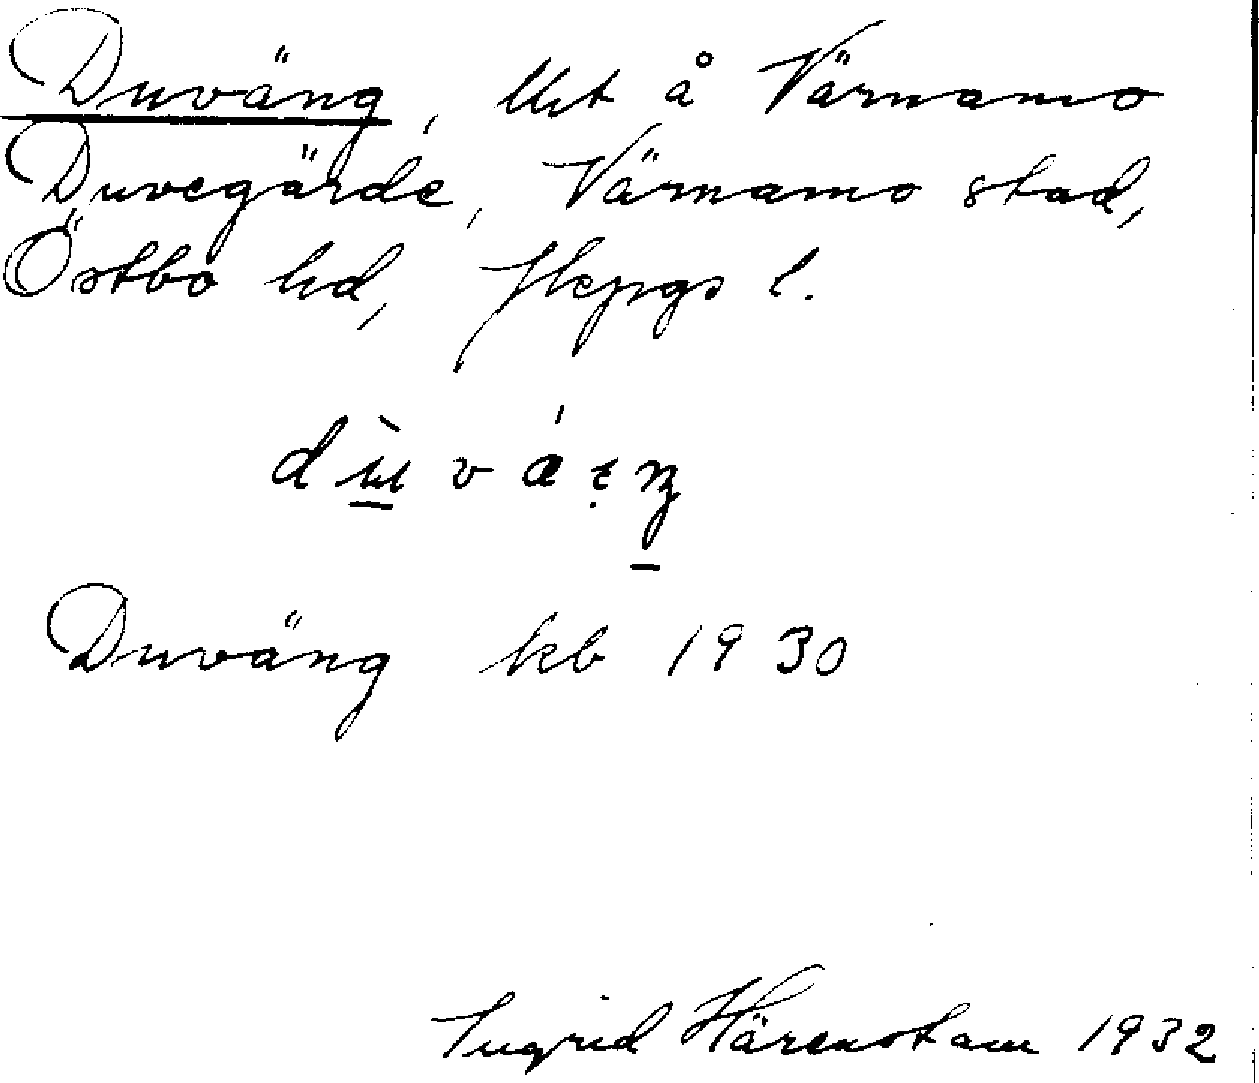 Duväng, lht å Värnamo
Duvegärde, Värnamo stad,
Östbo hd, Jkpgs l.
Duväng kb 1930
Ingrid Härenstam 1932